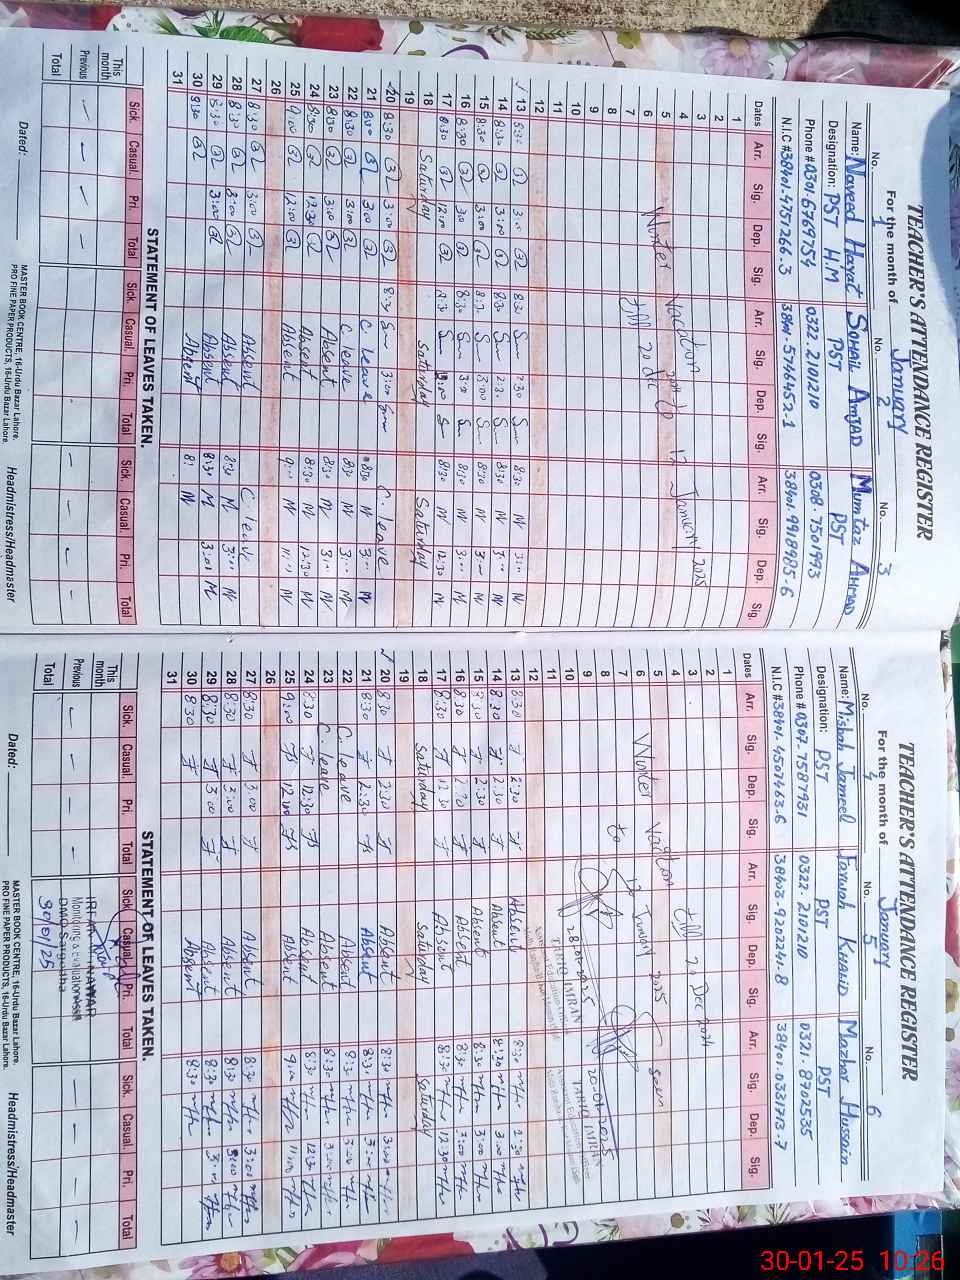 TEACHER'S ATTENDANCE REGISTER
For the month of January
No. 1 No. 2 No. 3
Name: Naveed Hayat Sohail Amjad Mumtaz Ahmad
Designation: PST H.M PST PST
Phone # 0301.6769754 0322.2101210 0308.7501993
N.I.C # 38401.4757266.3 38401.5746452-1 38401.9918985-6
Dates Arr. Sig. Dep. Sig. Arr. Sig. Dep. Sig. Arr. Sig. Dep. Sig.
1
2
3
4
5 Winter Vacation January 2025
6
7 till 20 Dec
8
9
10
11
12
13 8:30 8:30 8:30
14 8:30 8:30 8:30
15 8:30 3:00 8:30 3:00 8:30
16 8:30 8:30 8:30
17 8:30 12:30 8:30 12:30
18 Saturday Saturday Saturday
19
20 8:30 3:00 8:30 3:00 C. leave
21 8:00 3:00 C. leave 8:30
22 8:30 3:00 C. leave 8:30
23 8:30 3:00 Absent 8:30
24 8:30 12:30 Absent 8:30 12:30
25 9:00 12:00 Absent
26
27 8:30 3:00 Absent C. leave
28 8:30 3:00 Absent 8:30
29 8:30 3:00 Absent 8:30 3:01
30 8:30 Absent
31
STATEMENT OF LEAVES TAKEN.
Sick. Casual. Pri. Total Sick. Casual. Pri. Total Sick. Casual. Pri. Total
This month
Previous
Total
Dated:
MASTER BOOK CENTRE, 16-Urdu Bazar Lahore.
PRO FINE PAPER PRODUCTS, 16-Urdu Bazar Lahore.
Headmistress/Headmaster
TEACHER'S ATTENDANCE REGISTER
For the month of January
No. 4 No. 5 No. 6
Name: Misbah Jameel Farwah Khalid Mazhar Hussain
Designation: PST PST PST
Phone # 0307.7587931 0322.2101210 0321.8702535
N.I.C # 38401.4507463-6 38403-9202241.8 38401.0331713.7
Dates Arr. Sig. Dep. Sig. Arr. Sig. Dep. Sig. Arr. Sig. Dep. Sig.
1
2
3
4 till 20 Dec
5 seen
6 Winter January 2025
7 to
8
9 28-01-2025 20-01-2025
10 TARIQ IMRAN TARIQ IMRAN
11
12
13 8:30 2:30 Absent 8:30 2:30
14 8:30 2:30 Absent 3:00
15 8:30 2:30 Absent 8:30 3:00
16 8:30 2:30 Absent 8:30 3:00
17 8:30 12:30 Absent 8:30 12:30
18 Saturday Saturday Saturday
19
20 8:30 2:30 Absent 8:30 3:00
21 8:30 2:30 Absent 8:30 3:00
22 C. leave Absent 8:30 3:00
23 C. leave Absent 8:30 3:00
24 8:30 12:30 Absent 8:30 12:30
25 9:00 12:00 Absent
26
27 8:30 3:00 Absent 8:30 3:01
28 8:30 3:00 Absent 8:30 3:00
29 8:30 3:00 Absent 8:30
30 8:30 Absent 8:30
31
STATEMENT OF LEAVES TAKEN.
Sick. Casual. Pri. Total Sick. Casual. Pri. Total Sick. Casual. Pri. Total
This month
Previous
Total
Monitoring & Evaluation
DMO Sargodha
30/01/25
Dated:
MASTER BOOK CENTRE, 16-Urdu Bazar Lahore.
PRO FINE PAPER PRODUCTS, 16-Urdu Bazar Lahore.
Headmistress/Headmaster
30-01-25 10:26